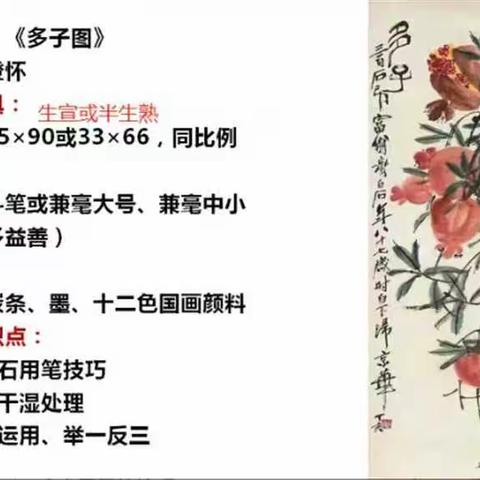 《多子图》
澄怀
具：
生宣或半生熟
5×90或33×66，同比例
斗笔或兼毫大号、兼毫中小
多益善）
炭条、墨、十二色国画颜料
识点：
石用笔技巧
干湿处理
运用、举一反三
多子
三百石印富翁齐白石年八十七岁时白下归京华